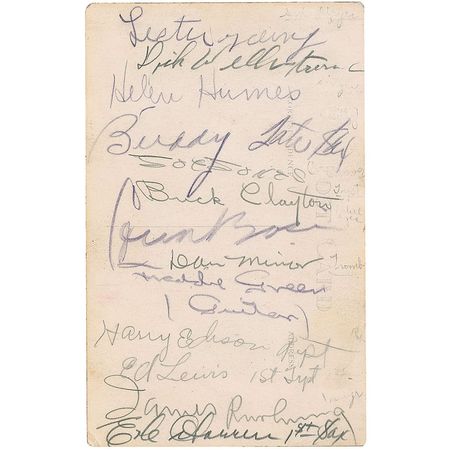 Lester Young
Dick Wells
Helen Humes
Buddy Tate Sax
Joe Jones
Buck Clayton
Count Basie
Dan Minor
Freddie Green
(Guitar)
Harry Edison Tpt
Ed Lewis 1st Tpt
James Rushing
Earle Warren 1st Sax